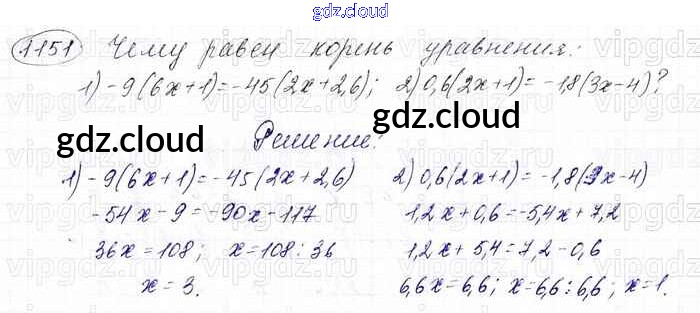 gdz.cloud
1151 Чему равен корень уравнения:
1) -9(6x+1)=-45(2x+2,6); 2) 0,6(2x+1)=-1,8(3x-4)?
gdz.cloud gdz.cloud
Решение:
1) -9(6x+1)=-45(2x+2,6)
-54x-9=-90x-117
36x=108; x=108:36
x=3.
2) 0,6(2x+1)=-1,8(3x-4)
1,2x+0,6=-5,4x+7,2
1,2x+5,4=7,2-0,6
6,6x=6,6; x=6,6:6,6; x=1.